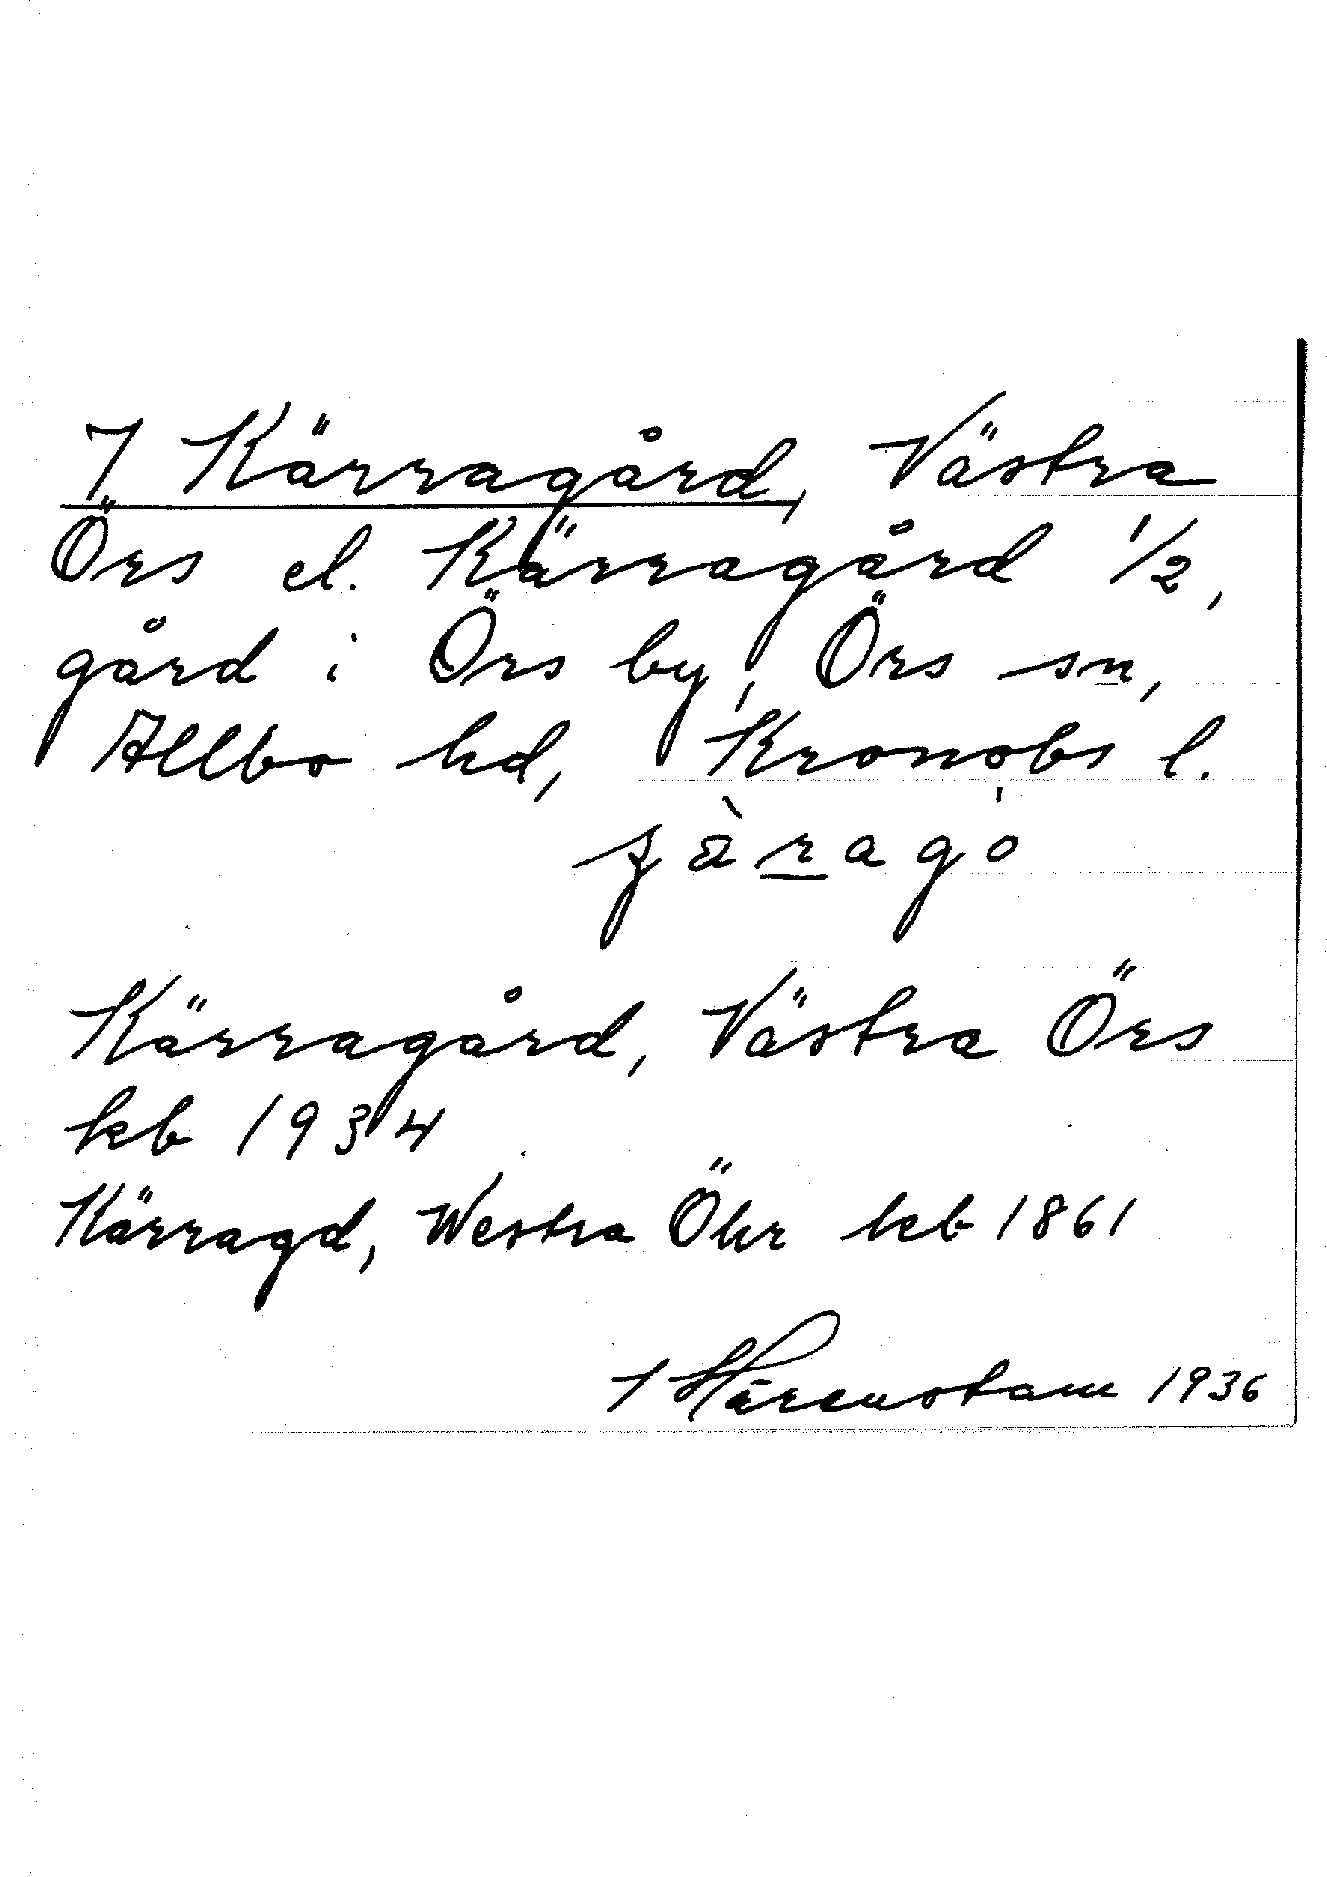 7 Kärragård, Västra
Örs el. Kärragård 1/2,
gård i Örs by, Örs sn,
Allbo hd, Kronobs l.
Kärragård, Västra Örs
kb 1934
Kärragd, Westra Öhr kb 1861
I Härenstam 1936